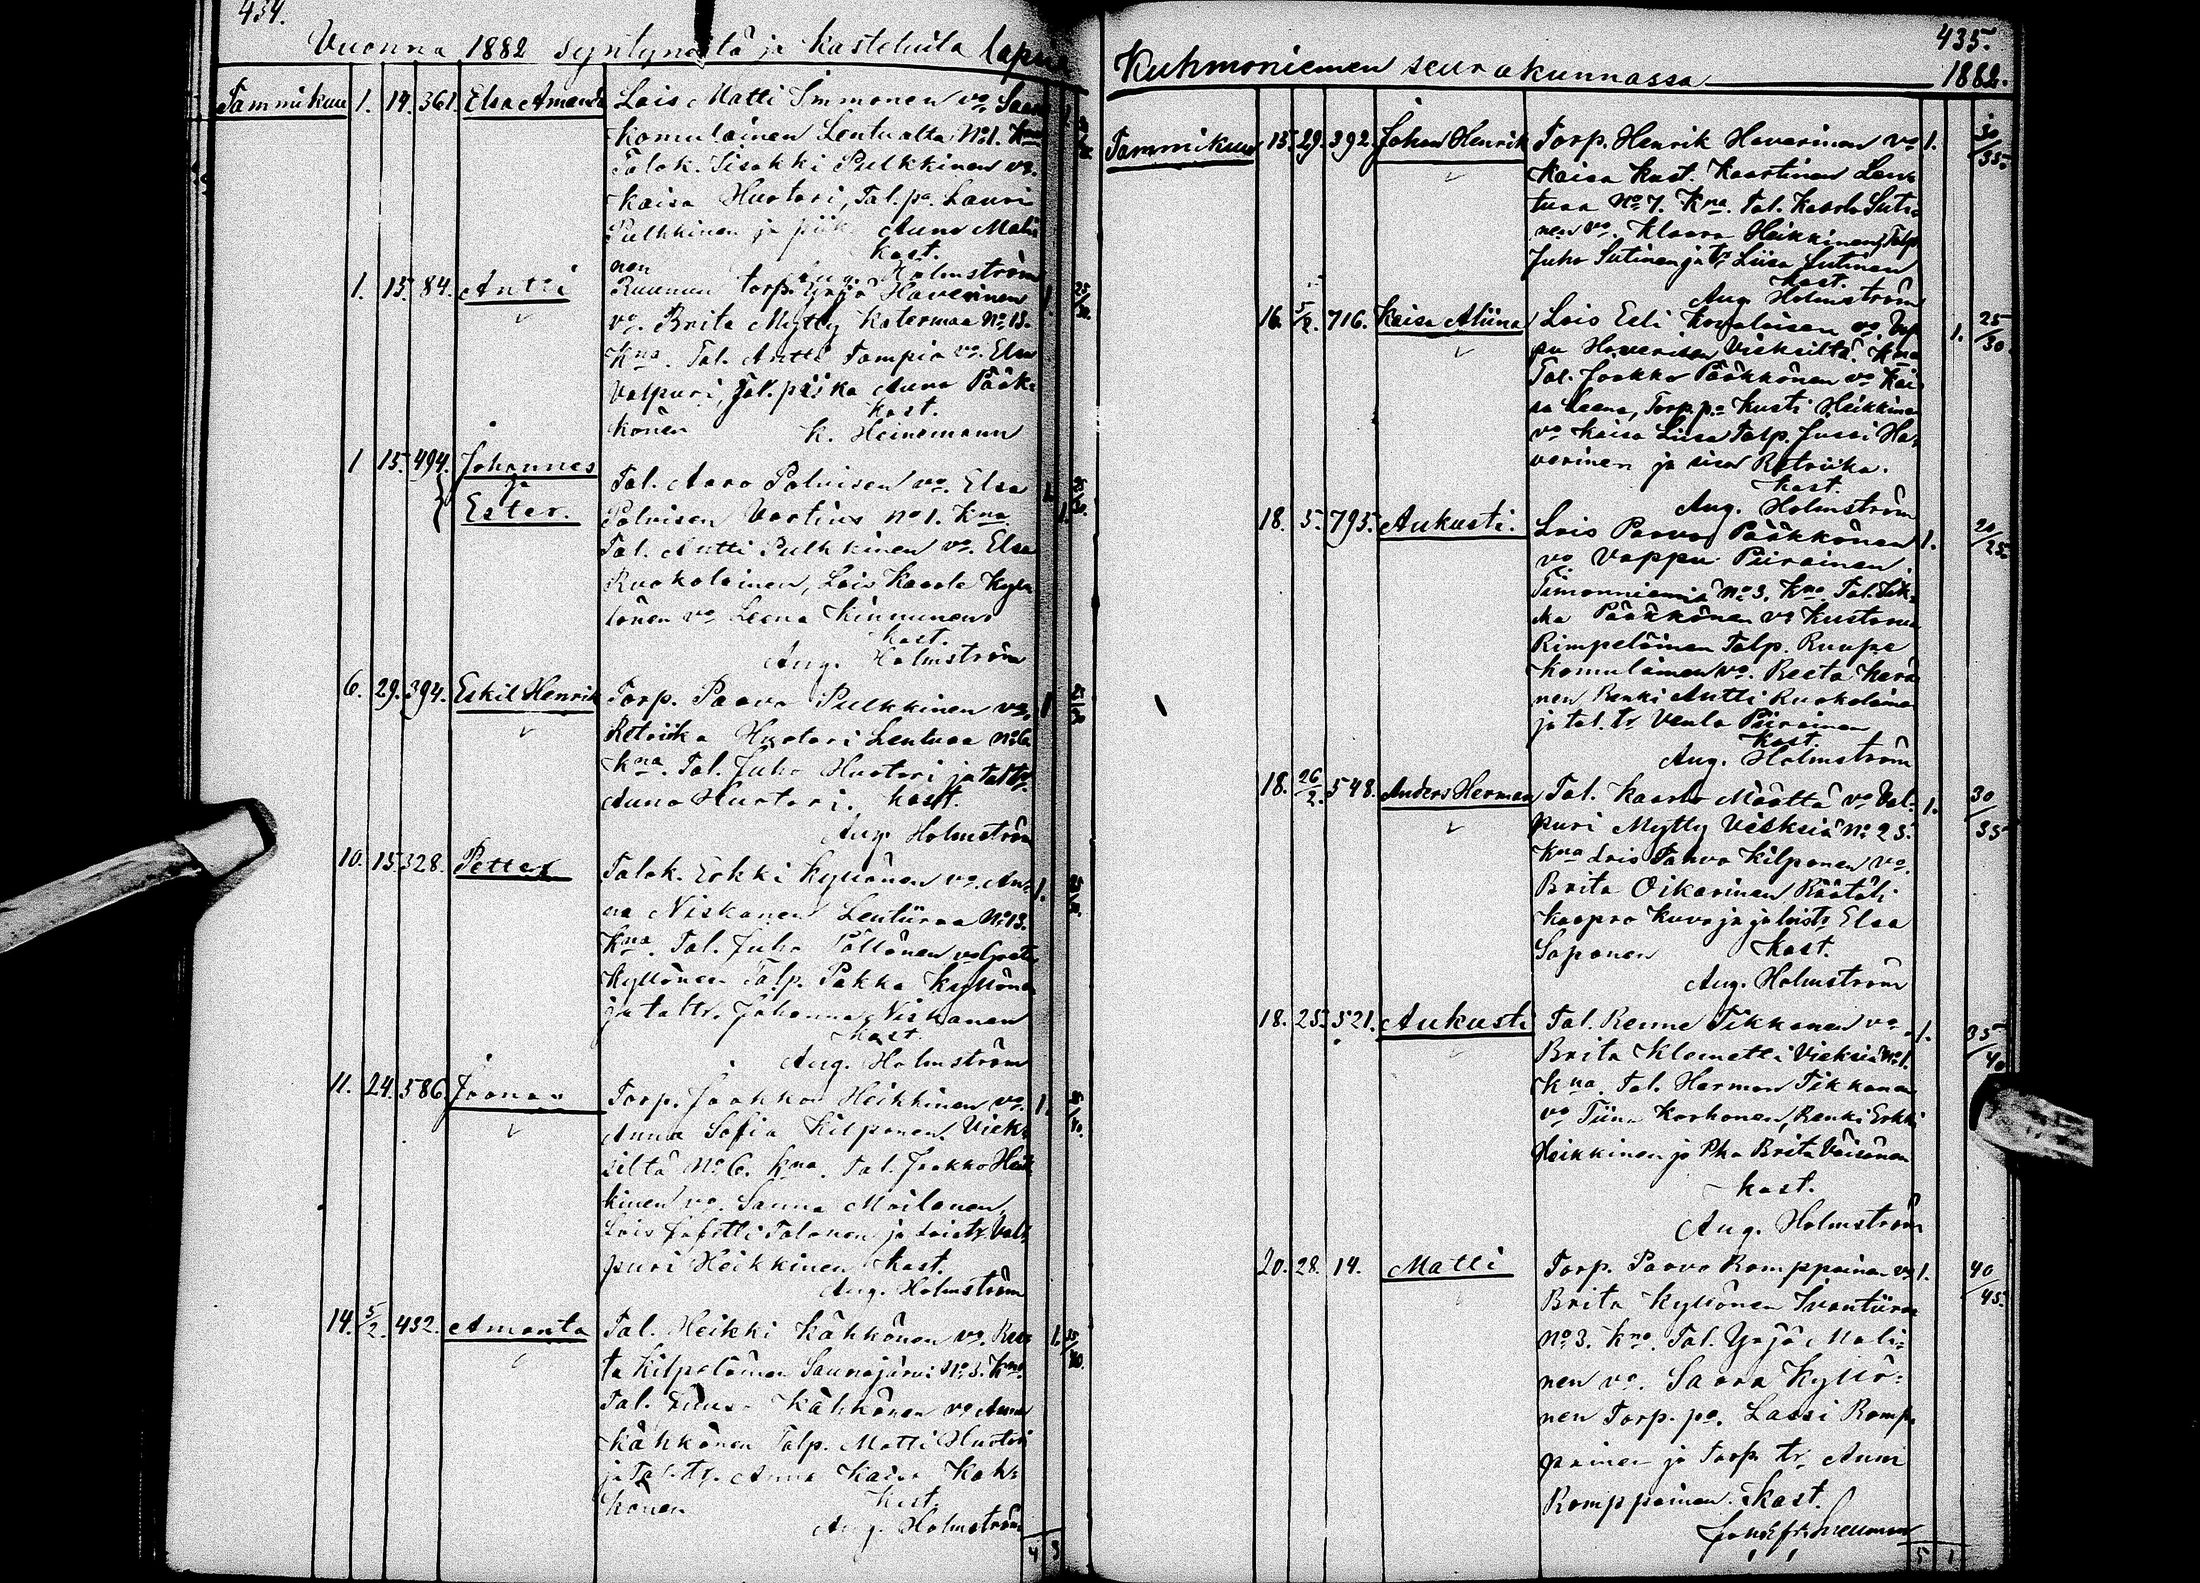 434.
Vuonna 1882 syntyneitä ja kastetuita lapsia
Tammikuu 1. 14. 361. Elsa Amanda Lois Matti Immonen vo. Saara
Komulainen Lentualta No 1. Kna
Talok. Iisakki Pulkkinen vo.
Kaisa Huotari, Tal. po. Lauri
Pulkkinen ja piika Anna Mali
nen Kast.
Aug. Holmström
1. 15. 84. Antti Ruunun torp. Yrjö Haverinen 1. 25/30
vo. Brita Mytty Katermaa No 13.
Kna. Tal. Antti Tampio vo. Elsa
Valpuri, Tal. piika Anna Pääk
könen Kast.
K. Heinemann
1 15. 494. Johannes
ja
Ester. Tal. Aaro Polvisen vo. Elsa
Polvisen Vartius No 1. Kna
Tal. Antti Pulkkinen vo. Elsa
Ruokolainen, Lois Kaarle Kyl
lönen vo Leena Kinnunen
Kast.
Aug. Holmström
6. 29. 394. Eskil Henrik Torp. Paavo Pulkkinen vo. 1
Retriika Huotari Lentuaa No 6
Kna. Tal. Juho Huotari ja tal tr.
Anna Huotari. Kast.
Aug. Holmström
10. 15. 328. Petter Talok. Erkki Kyllönen vo. An- 1.
na Niskanen Lentiiraa No 13.
Kna. Tal. Juho Pöllönen vo
Kyllönen Talp. Pekka Kyllönen
ja tal tr. Johanna Niskanen
Kast.
Aug. Holmström
11. 24. 586. Joonas Torp. Jaakko Heikkinen vo. 1.
Anna Sofia Kilponen Viek
siltä No 6. Kna. Tal. Jaakko Heik
kinen vo. Sanna Moilanen,
Lois Tolonen ja loistr. Val
puri Heikkinen Kast.
Aug. Holmström
14. 5/2. 432. Amanta Tal. Heikki Kähkönen vo. Ree 1. 35/40.
ta Kilpeläinen Saunajärvi No 3. Kna.
Tal. Kähkönen vo Anna
Kähkönen Talp. Matti Huotari
ja Tal. tr. Anna Kaisa Käh-
könen Kast.
Aug. Holmström
4 3
435.
Kuhmoniemen seurakunnassa 1882.
Tammikuu 15. 29. 392. Johan Henrik Torp. Henrik Haverinen vo 1. 30/35.
Kaisa Kust. Kaartinen Len
tuaa No 7. Kna. Tal. Kaarlo Suti
nen vo. Klaara Heikkinen, Talp.
Juho Sutinen ja tr Liisa Sutinen
Kast.
Aug. Holmström
16. 5/2. 716. Kaisa Aliina Lois Eeli Kovalaisen vo. Vap 1. 25/30.
pu Haverisen Vieksiltä. Kna
Tal. Jaakko Pääkkönen vo Kai
sa Leena, Torp. po Kusti Heikkinen
vo Kaisa Liisa Talp. Jussi Ha
verinen ja sisar Retriika.
Kast.
Aug. Holmström
18. 5. 795. Aukusti. Lois Paavo Pääkkönen 1. 20/25.
vo Vappu Piirainen
Timoniemi No 3. Kna. Tal.
Pääkkönen vo Kustaava
Rimpeläinen Talp. Ruupe
Komulainen vo. Reeta Kerä
nen Renki Antti Ruokolainen
ja tal. tr Venla Piirainen
Kast
Aug. Holmström
18. 26/2. 548. Anders Herman Tal. Kaarlo Määttä vo Val- 1. 30/35
puri Mytty Vieksiä No 23.
Kna Lois Paavo Kilponen vo.
Brita Oikarinen Räätäli
Kaapro Kuvaja ja loistr. Elsa
Saponen Kast.
Aug. Holmström
18. 25. 521. Aukusti Tal. Renne Tikkanen vo 1. 35/40
Brita Klemetti Vieksiä No 1.
Kna. Tal. Herman Tikkanen
vo Tiina Korhonen, Renki Erkki
Heikkinen ja Pka Brita Väisänen
Kast.
Aug. Holmström
20. 28. 14. Matti Torp. Paavo Romppainen vo 1. 40/45.
Brita Kyllönen Ivantiiraa
No 3. Kna. Tal. Yrjö Mali-
nen vo. Saara Kyllö-
nen Torp. po. Lassi Romp
painen ja Torp. tr. Anni
Romppainen. Kast.
5 1